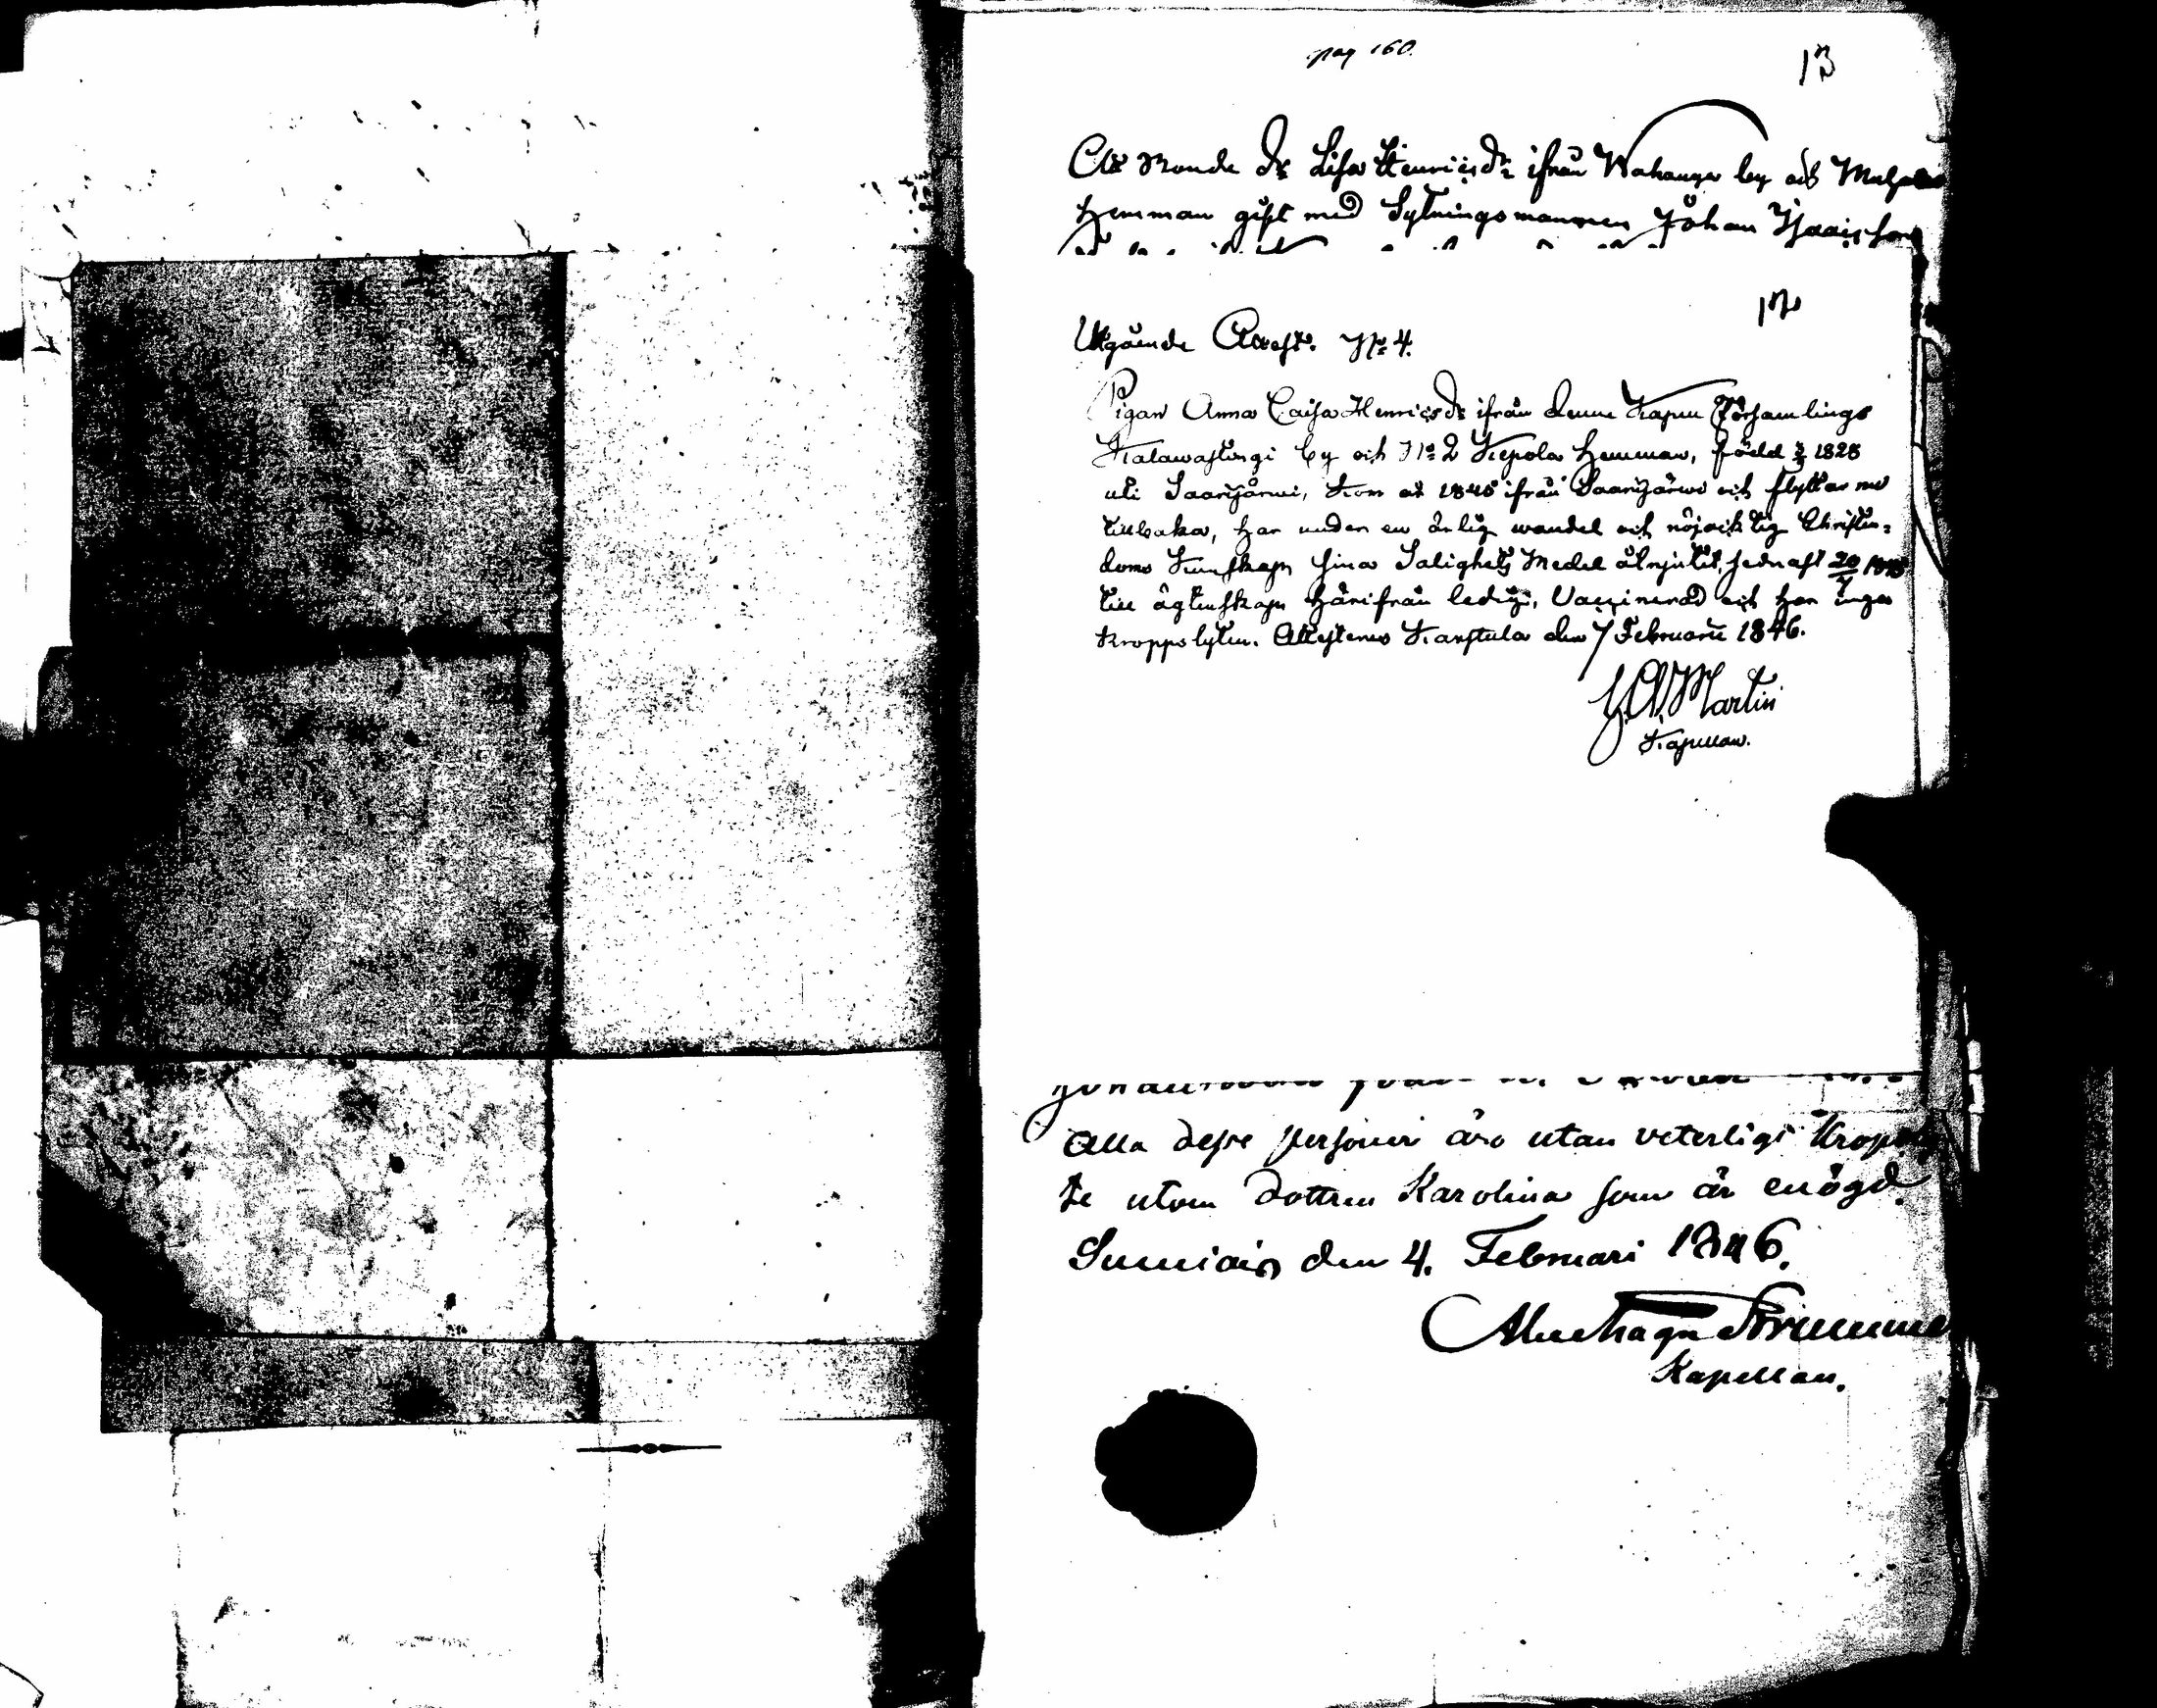 pag 160.
13
Att Bonde Dr Lisa Henricsdr ifrån Wahanga by och
Hemman gift med Sytningsmannen Johan Isaacsson
12
Utgående Attest. No 4.
Pigan Anna Caisa Henricsdr ifrån denne Kapell Församlings
by och No 2 Kepola Hemman, född 1828
uti Saarijärvi, kom år 1845 ifrån Saarijärvi och flyttar nu
tillbaka, har under en ärlig wandel och nöjachtig Christen-
doms Kunskap sina Salighets Medel åtnjutit, sednast 20/7 1845
till ägtenskap härifrån ledig, Vaccinerad och har inga
kroppslyten. Attesteras Karstula den 7 Februarii 1846.
Martin
Kapellan.
Alla desse personer äro utan veterligt
te utom dottren Karolina som är enögd.
Sumiais den 4. Februari 1846.
Kapellan.